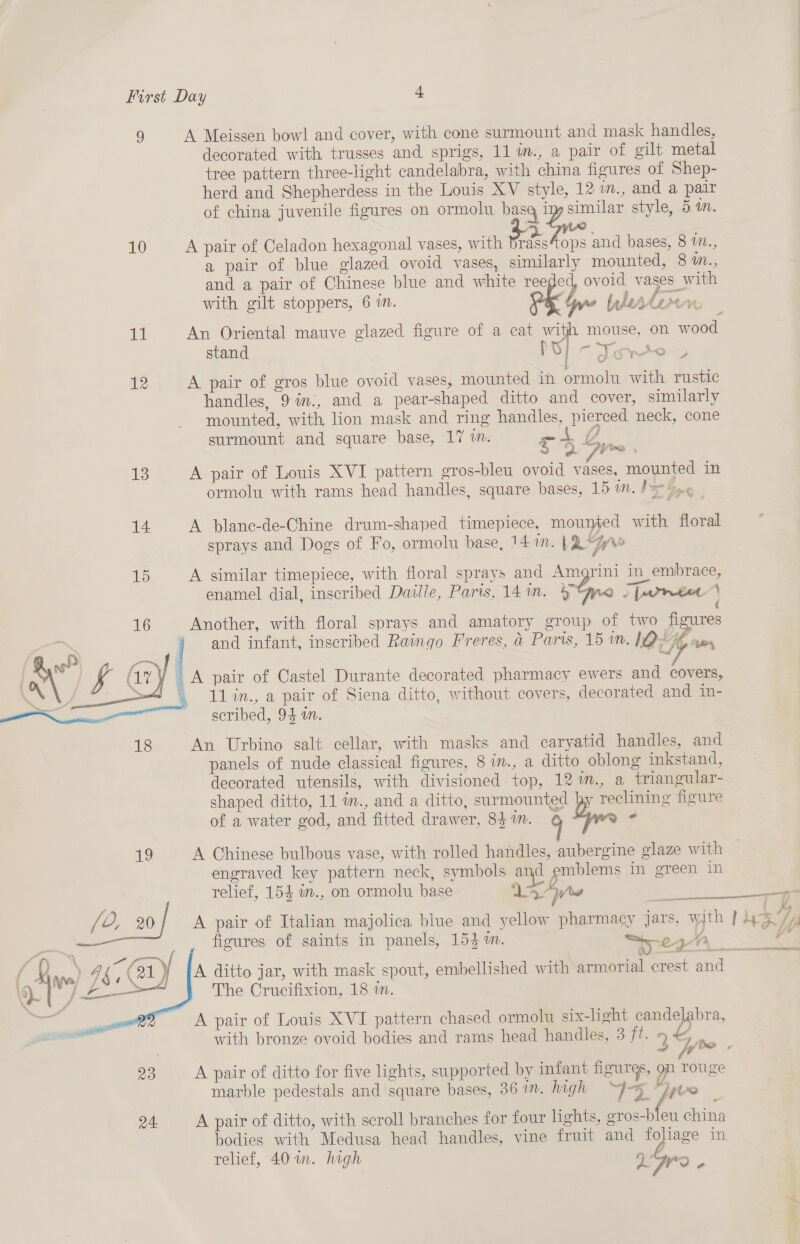 First Day 4
9 A Meissen bowl and cover, with cone surmount and mask handles,
decorated with trusses and sprigs, 11 in., a pair of gilt metal
tree pattern three-light candelabra, with china figures of Shep-
herd and Shepherdess in the Louis XV style, 12 in., and a pair
of china juvenile figures on ormolu base, in similar style, 5 in.
10 A pair of Celadon hexagonal vases, with brass tops and bases, 8 in.,
a pair of blue glazed ovoid vases, similarly mounted, 8 in.,
and a pair of Chinese blue and white reeded, ovoid vases with
with gilt stoppers, 6 in.
11 An Oriental mauve glazed figure of a cat with mouse, on wood
stand
12 A pair of gros blue ovoid vases, mounted in ormolu with rustic
handles, 9 in., and a pear-shaped ditto and cover, similarly
mounted, with lion mask and ring handles, pierced neck, cone
surmount and square base, 17 in.
13 A pair of Louis XVI pattern gros-bleu ovoid vases, mounted in
ormolu with rams head handles, square bases, 15 in.
14 A blanc-de-Chine drum-shaped timepiece, mounted with floral
sprays and Dogs of Fo, ormolu base, 14 in.
15 A similar timepiece, with floral sprays and Amorini in embrace,
enamel dial, inscribed Daille, Paris, 14 in.
16 Another, with floral sprays and amatory group of two figures
and infant, inscribed Raingo Freres, à Paris, 15 in.
17 A pair of Castel Durante decorated pharmacy ewers and covers,
11 in., a pair of Siena ditto, without covers, decorated and in-
scribed, 9½ in.
18 An Urbino salt cellar, with masks and caryatid handles, and
panels of nude classical figures, 8 in., a ditto oblong inkstand,
decorated utensils, with divisioned top, 12 in., a triangular-
shaped ditto, 11 in., and a ditto, surmounted by reclining figure
of a water god, and fitted drawer, 8½ in.
19 A Chinese bulbous vase, with rolled handles, aubergine glaze with
engraved key pattern neck, symbols and emblems in green in
relief, 15½ in., on ormolu base
20 A pair of Italian majolica blue and yellow pharmacy jars, with
figures of saints in panels, 15½ in.
21 A ditto jar, with mask spout, embellished with armorial crest and
The Crucifixion, 18 in.
22 A pair of Louis XVI pattern chased ormolu six-light candelabra,
with bronze ovoid bodies and rams head handles, 3 ft.
23 A pair of ditto for five lights, supported by infant figures, on rouge
marble pedestals and square bases, 36 in. high
24 A pair of ditto, with scroll branches for four lights, gros-bleu china
bodies with Medusa head handles, vine fruit and foliage in
relief, 40 in. high